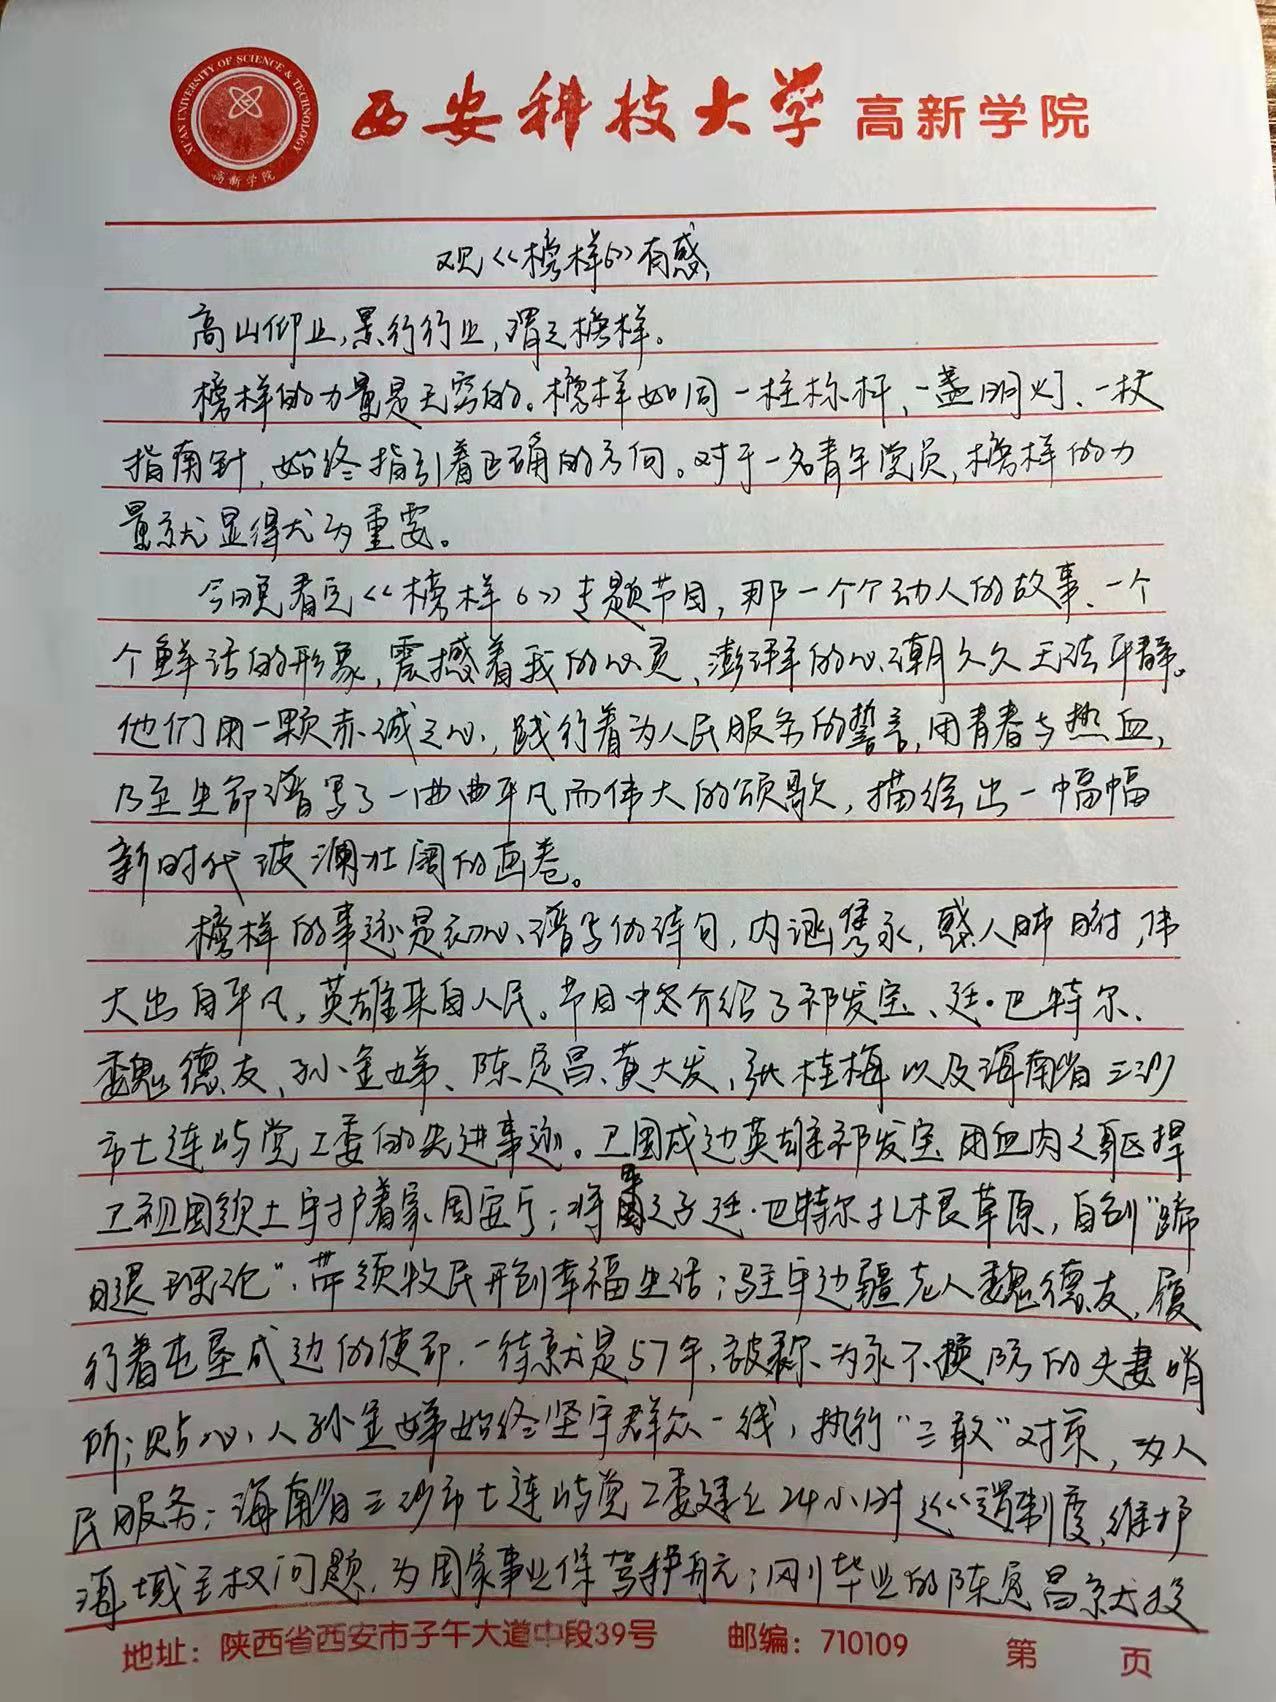 XI'AN UNIVERSITY OF SCIENCE & TECHNOLOGY
高新学院
西安科技大学 高新学院
观《榜样6》有感
高山仰止,景行行止,谓之榜样。
榜样的力量是无穷的。榜样如同一柱标杆、一盏明灯、一枚
指南针,始终指引着正确的方向。对于一名青年党员,榜样的力
量就显得尤为重要。
今晚看完《榜样6》专题节目,那一个个动人的故事、一个
个鲜活的形象,震撼着我的心灵,澎湃的心潮久久无法平静。
他们用一颗赤诚之心,践行着为人民服务的誓言,用青春与热血,
乃至生命谱写了一曲曲平凡而伟大的颂歌,描绘出一幅幅
新时代波澜壮阔的画卷。
榜样的事迹是初心谱写的诗句,内涵隽永,感人肺腑,伟
大出自平凡,英雄来自人民。节目中介绍了祁发宝、廷·巴特尔、
魏德友、孙金娣、陈定昌、黄大发、张桂梅以及海南省三沙
市七连屿党工委的先进事迹。卫国戍边英雄祁发宝用血肉之躯捍
卫祖国领土守护着家国安宁;将军之子廷·巴特尔扎根草原,自创"蹄
腿理论",带领牧民开创幸福生活;驻守边疆老人魏德友,履
行着屯垦戍边的使命,一待就是57年,被称为永不换防的夫妻哨
所;贴心人孙金娣始终坚守群众一线,执行"三敢"对策,为人
民服务;海南省三沙市七连屿党工委建立24小时巡逻制度,维护
海域主权问题,为国家事业保驾护航;刚毕业的陈定昌就投
地址:陕西省西安市子午大道中段39号 邮编:710109 第 页